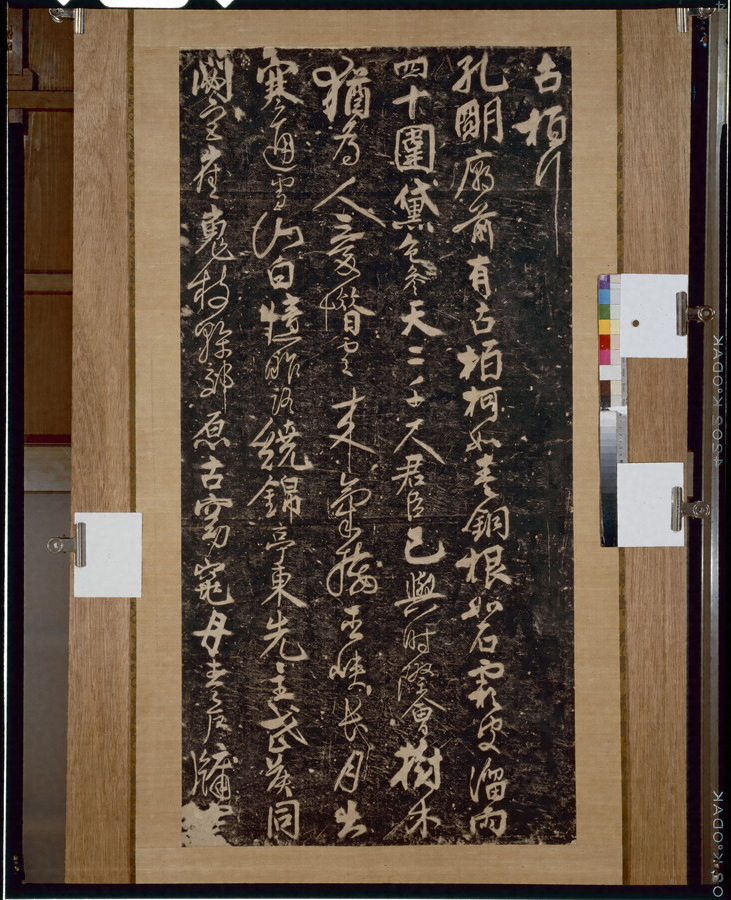 古柏行
孔明廟前有古柏柯如青銅根如石霜皮溜雨
四十圍黛色參天二千尺君臣已與時際會樹木
猶為人愛惜雲來氣接巫峽長月出
寒通雪山白憶昨路繞錦亭東先主武侯同
閟宮崔嵬枝幹郊原古窈窕丹青戶牖
KODAK
KODAK